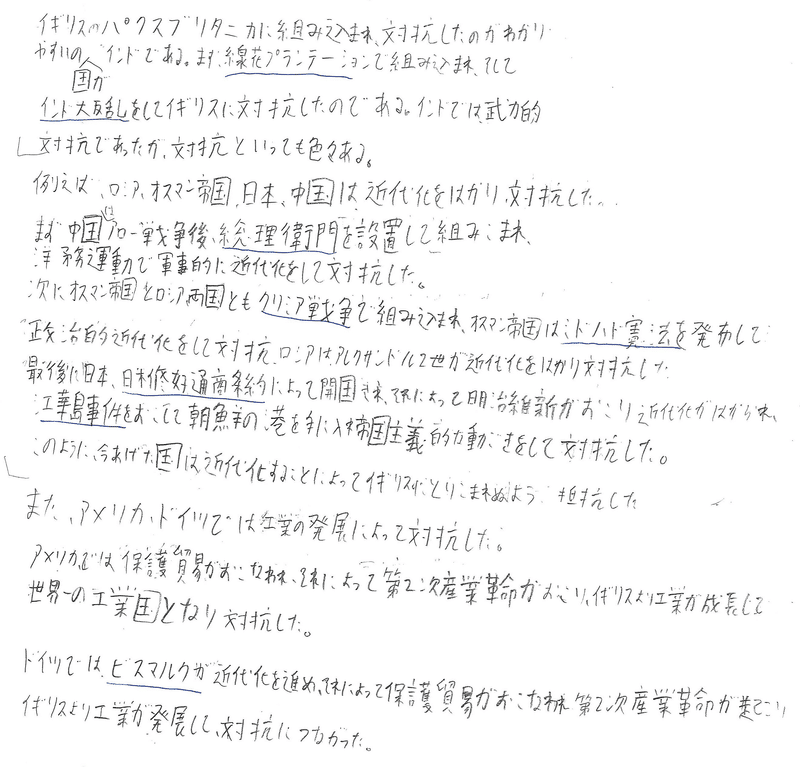 イギリスのパクスブリタニカに組み込まれ、対抗したのがわかり
やすいの国がインドである。まず、線花プランテーションで組み込まれ、そして
インド大反乱をしてイギリスに対抗したのである。インドでは、武力的
対抗であったが、対抗といっても色々ある。
例えば、ロシア、オスマン帝国、日本、中国は近代化をはかり、対抗した。
まず中国はアロー戦争後、総理衛門を設置して組みこまれ、
洋務運動で軍事的に近代化をして対抗した。
次にオスマン帝国とロシア両国ともクリミア戦争で組み込まれ、オスマン帝国はミドハト憲法を発布して
政治的近代化をして対抗、ロシアはアレクサンドル2世が近代化をはかり対抗した
最後に日本、日米修好通商条約によって開国され、それによって明治維新がおこり近代化がはかられ、
江華島事件をおこして朝鮮の港を手に入れ帝国主義的な動きをして対抗した。
このように、今あげた国は近代化することによってイギリスにとりこまれぬよう抵抗した
また、アメリカ、ドイツでは工業の発展によって対抗した。
アメリカでは保護貿易がおこなわれ、それによって第2次産業革命がおこり、イギリスより工業が成長して
世界一の工業国となり対抗した。
ドイツではビスマルクが近代化を進め、それによって保護貿易がおこなわれ第2次産業革命が起こり
イギリスより工業が発展して、対抗につながった。